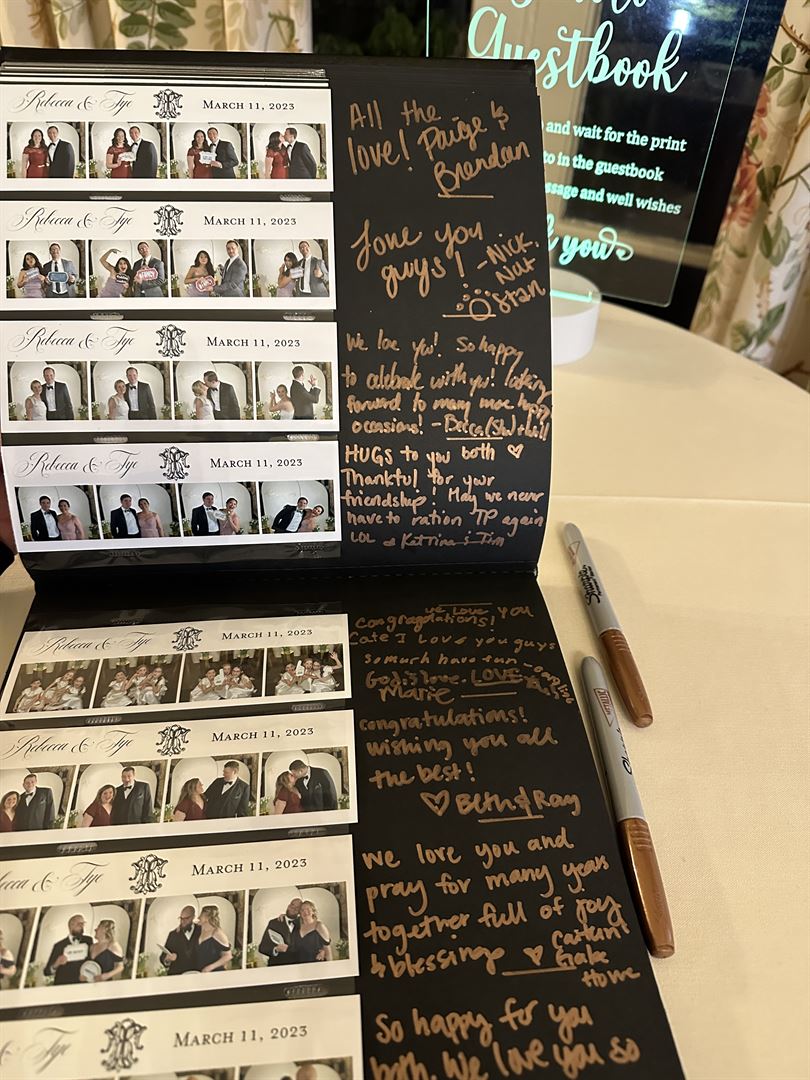 Guestbook
and wait for the print
to in the guestbook
message and well wishes
you
Rebecca & Tye MARCH 11, 2023
All the
love! Paige &
Brendan
Rebecca & Tye MARCH 11, 2023
Love you
guys! - Nick,
Nat
Stan
Rebecca & Tye MARCH 11, 2023
We love you! So happy
to celebrate with you! Looking
forward to many more happy
occasions! -
Rebecca & Tye MARCH 11, 2023
HUGS to you both ♡
Thankful for your
friendship! May we never
have to ration TP again
LOL Katrina & Tim
Rebecca & Tye MARCH 11, 2023
we love you
Congratulations!
Cate I Love you guys
so much have fun
God is love. LOVE
Marie
Rebecca & Tye MARCH 11, 2023
congratulations!
wishing you all
the best!
♡ Beth & Ray
Rebecca & Tye MARCH 11, 2023
We love you and
pray for many years
together full of joy
& blessings ♡ Caitlin &
Gabe
Howe
Tye MARCH 11, 2023
So happy for you
both. We love you so
Sharpie